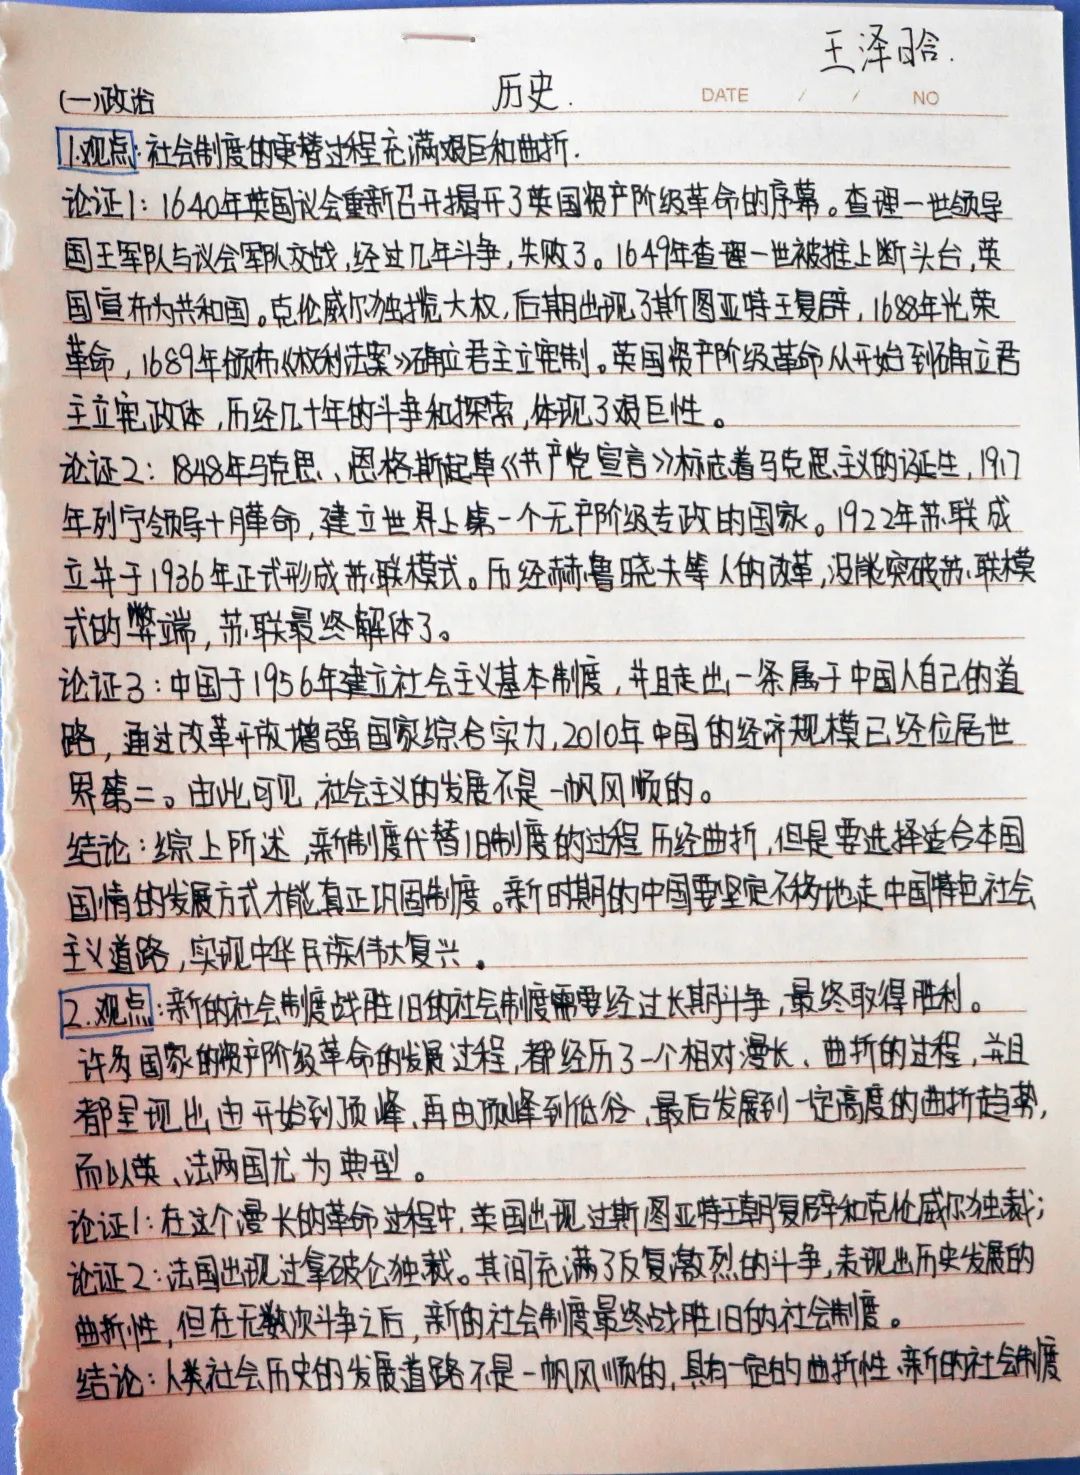 王泽晗.
(一)政治
历史.
DATE / / NO
1.观点:社会制度的更替过程充满艰巨和曲折.
论证1：1640年英国议会重新召开揭开了英国资产阶级革命的序幕。查理一世领导
国王军队与议会军队交战,经过几年斗争,失败了。1649年查理一世被推上断头台,英
国宣布为共和国。克伦威尔独揽大权,后期出现了斯图亚特王复辟,1688年光荣
革命,1689年颁布《权利法案》确立君主立宪制。英国资产阶级革命从开始到确立君
主立宪政体,历经几十年的斗争和探索,体现了艰巨性。
论证2：1848年马克思、恩格斯起草《共产党宣言》标志着马克思主义的诞生,1917
年列宁领导十月革命,建立世界上第一个无产阶级专政的国家。1922年苏联成
立并于1936年正式形成苏联模式。历经赫鲁晓夫等人的改革,没能突破苏联模
式的弊端,苏联最终解体了。
论证3：中国于1956年建立社会主义基本制度,并且走出一条属于中国人自己的道
路,通过改革开放增强国家综合实力,2010年中国的经济规模已经位居世
界第二。由此可见,社会主义的发展不是一帆风顺的。
结论：综上所述,新制度代替旧制度的过程历经曲折,但是要选择适合本国
国情的发展方式才能真正巩固制度。新时期的中国要坚定不移地走中国特色社会
主义道路,实现中华民族伟大复兴。
2.观点:新的社会制度战胜旧的社会制度需要经过长期斗争,最终取得胜利。
许多国家的资产阶级革命的发展过程,都经历了一个相对漫长、曲折的过程,并且
都呈现出由开始到顶峰、再由顶峰到低谷、最后发展到一定高度的曲折趋势,
而以英、法两国尤为典型。
论证1:在这个漫长的革命过程中,英国出现过斯图亚特王朝复辟和克伦威尔独裁;
论证2:法国出现过拿破仑独裁。其间充满了反复激烈的斗争,表现出历史发展的
曲折性,但在无数次斗争之后,新的社会制度最终战胜旧的社会制度。
结论:人类社会历史的发展道路不是一帆风顺的,具有一定的曲折性、新的社会制度